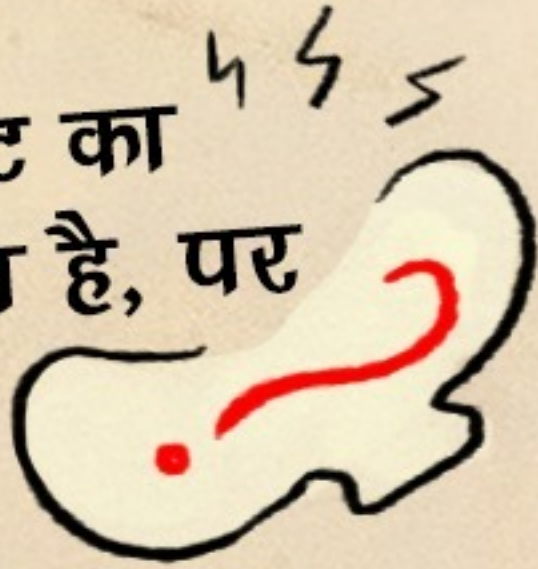 का
है, पर
?